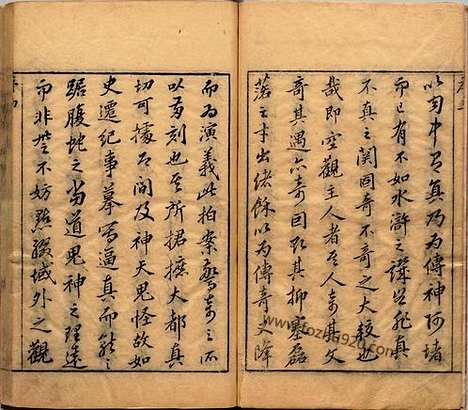 以幻中有真乃為傳神阿堵
而已有不如水滸之譏豈非真
不真之關固奇不奇之大較也
哉即空觀主人者其人奇其文
奇其遇亦奇因取其抑塞磊
落之才出緒餘以為傳奇又降
而為演義此拍案驚奇之所
以兩刻也其所捃摭大都真
切可據即間及神天鬼怪故如
史遷紀事摹寫逼真而龍之
踞腹蛇之當道鬼神之理遠
而非無不妨點綴域外之觀